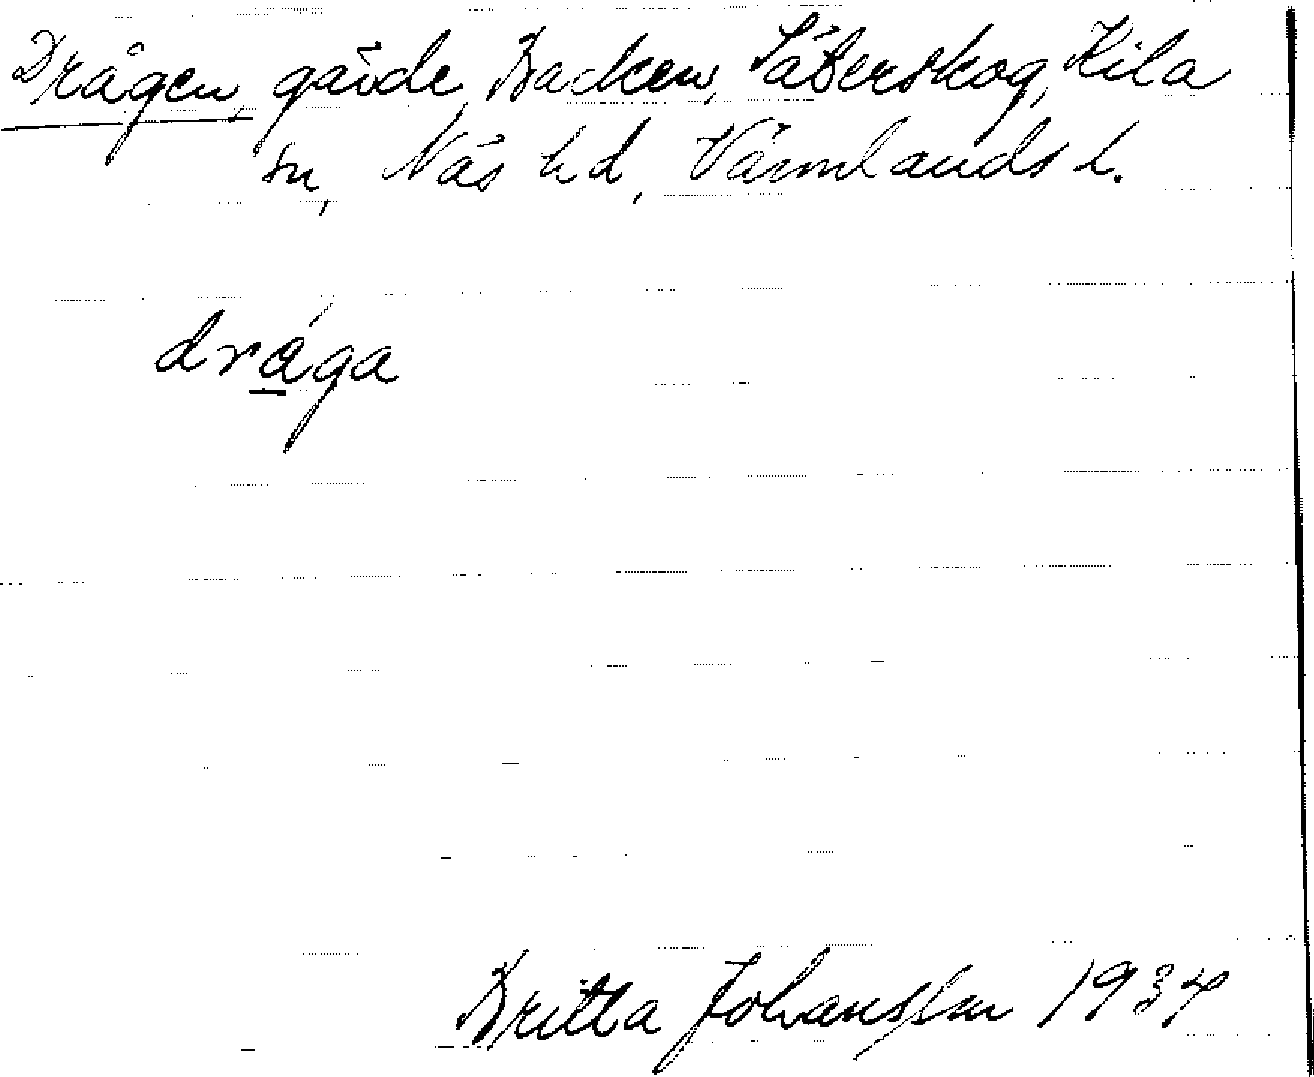 Drågen, gärde, Backen, Säterskog, Kila
sn, Näs hd, Värmlands l.
dråga
Britta Johansson 1934